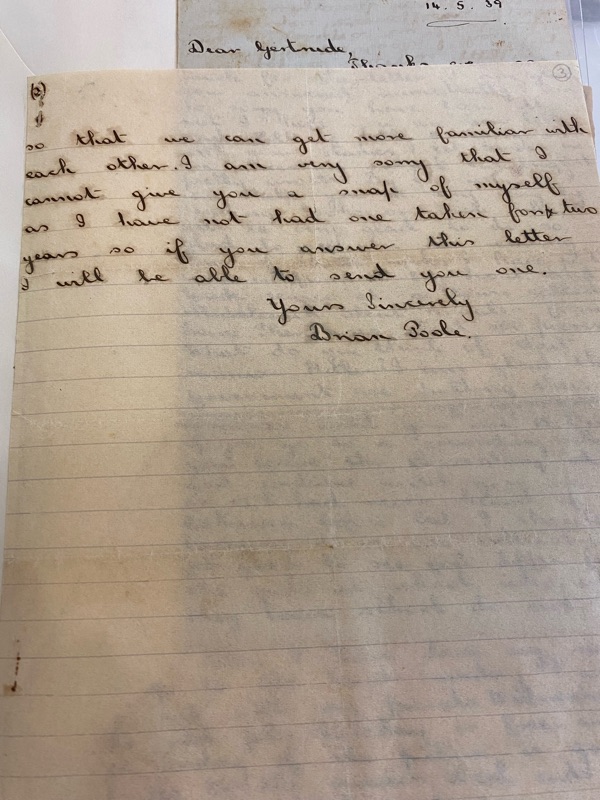 14.5.39
Dear Gertrude,
Thanks
(2)
3
so that we can get more familiar with
each other. I am very sorry that I
cannot give you a snap of myself
as I have not had one taken for two
years so if you answer this letter
I will be able to send you one.
Yours Sincerely
Brian Poole.